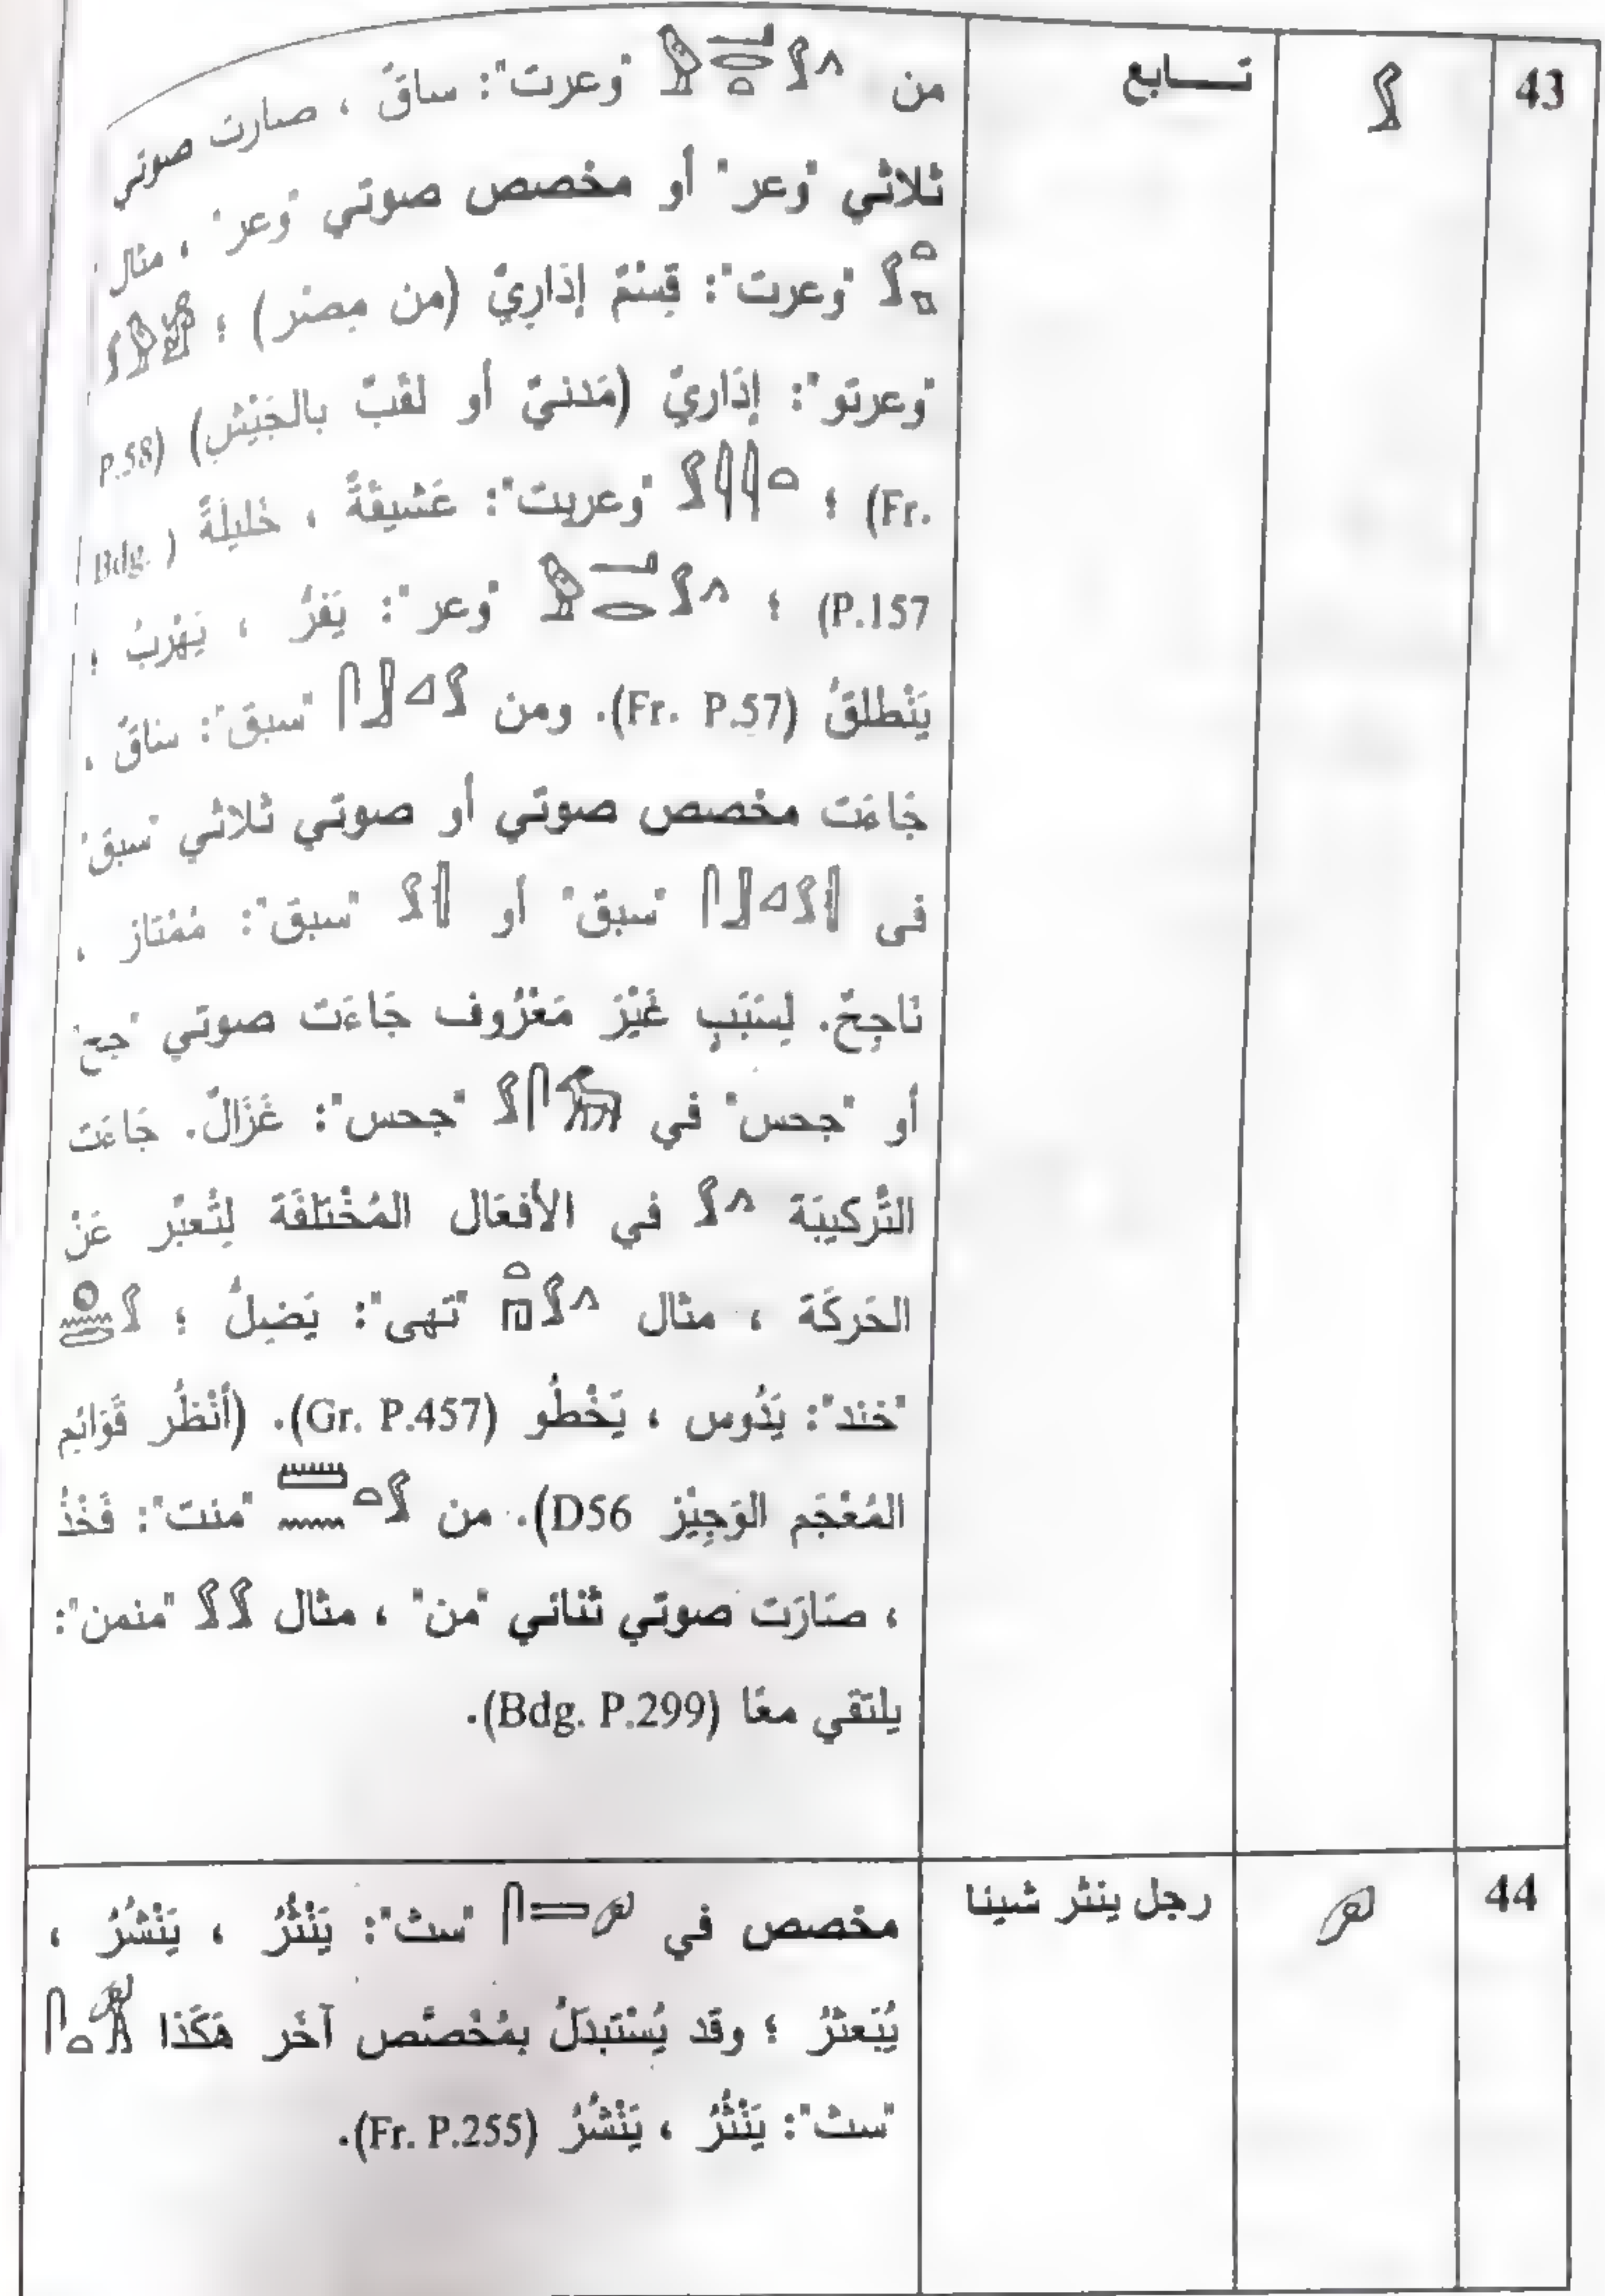 43 𓂾 تـــابع من 𓅱𓂝𓂋𓏏𓂾𓂻 "وعرت": ساقٌ ، صارت صوتي
ثلاثي "وعر" أو مخصص صوتي "وعر" ، مثال
"وعرت": قِسْمٌ إدَارِيٌ (من مِصْر) ؛
"وعرتو": إدَاريٌ (مَدنيٌ أو لقَبٌ بالجَيْشِ) (P.58
Fr.) ؛ 𓂾𓇋𓇋𓏏 "وعريت": عَشيقَةٌ ، خَليلَةٌ (Bdg.
P.157) ؛ 𓅱𓂝𓂋𓂾𓂻 "وعر": يَفرُ ، يَهْرَبُ ؛
يَنْطلقُ (Fr. P.57). ومن 𓋴𓃀𓈎𓂾 "سبق": ساقٌ ،
جَاءَت مخصص صوتي أو صوتي ثلاثي "سبق"
فى 𓋴𓃀𓈎𓂾𓏛 "سبق" أو 𓂾𓏛 "سبق": مُمْتَاز ،
نَاجِحٌ. لِسَبَبٍ غَيْرَ مَعْرُوف جَاءَت صوتي "جح"
أو "جحس" في "جحس": غَزَالٌ. جَاءَت
التَّركيبَة 𓂾𓂻 في الأفعَال المُخْتَلفَة لِتُعبِّر عَنْ
الحَركَة ، مثال 𓏏𓉔𓂾𓂻 "تهى": يَضِلُ ؛ 𓐍𓈖𓂧𓂾
"خند": يَدُوس ، يَخْطُو (Gr. P.457). (أنْظُر قَوَائم
المُعْجَم الوَجِيْز D56). من 𓏠𓈖𓏏𓂾 "منت": فَخْذُ
، صَارَت صوتي ثنائي "من" ، مثال 𓂾𓂾 "منمن":
يلتقي معًا (Bdg. P.299).
44 رجل ينثر شيئا مخصص في "سث": يَنْثُرُ ، يَنْشُرُ ،
يُبَعثرُ ؛ وقَد يُسْتَبدَلُ بمُخَصَّص آخَر هَكَذا
"سث": يَنْثُرُ ، يَنْشُرُ (Fr. P.255).